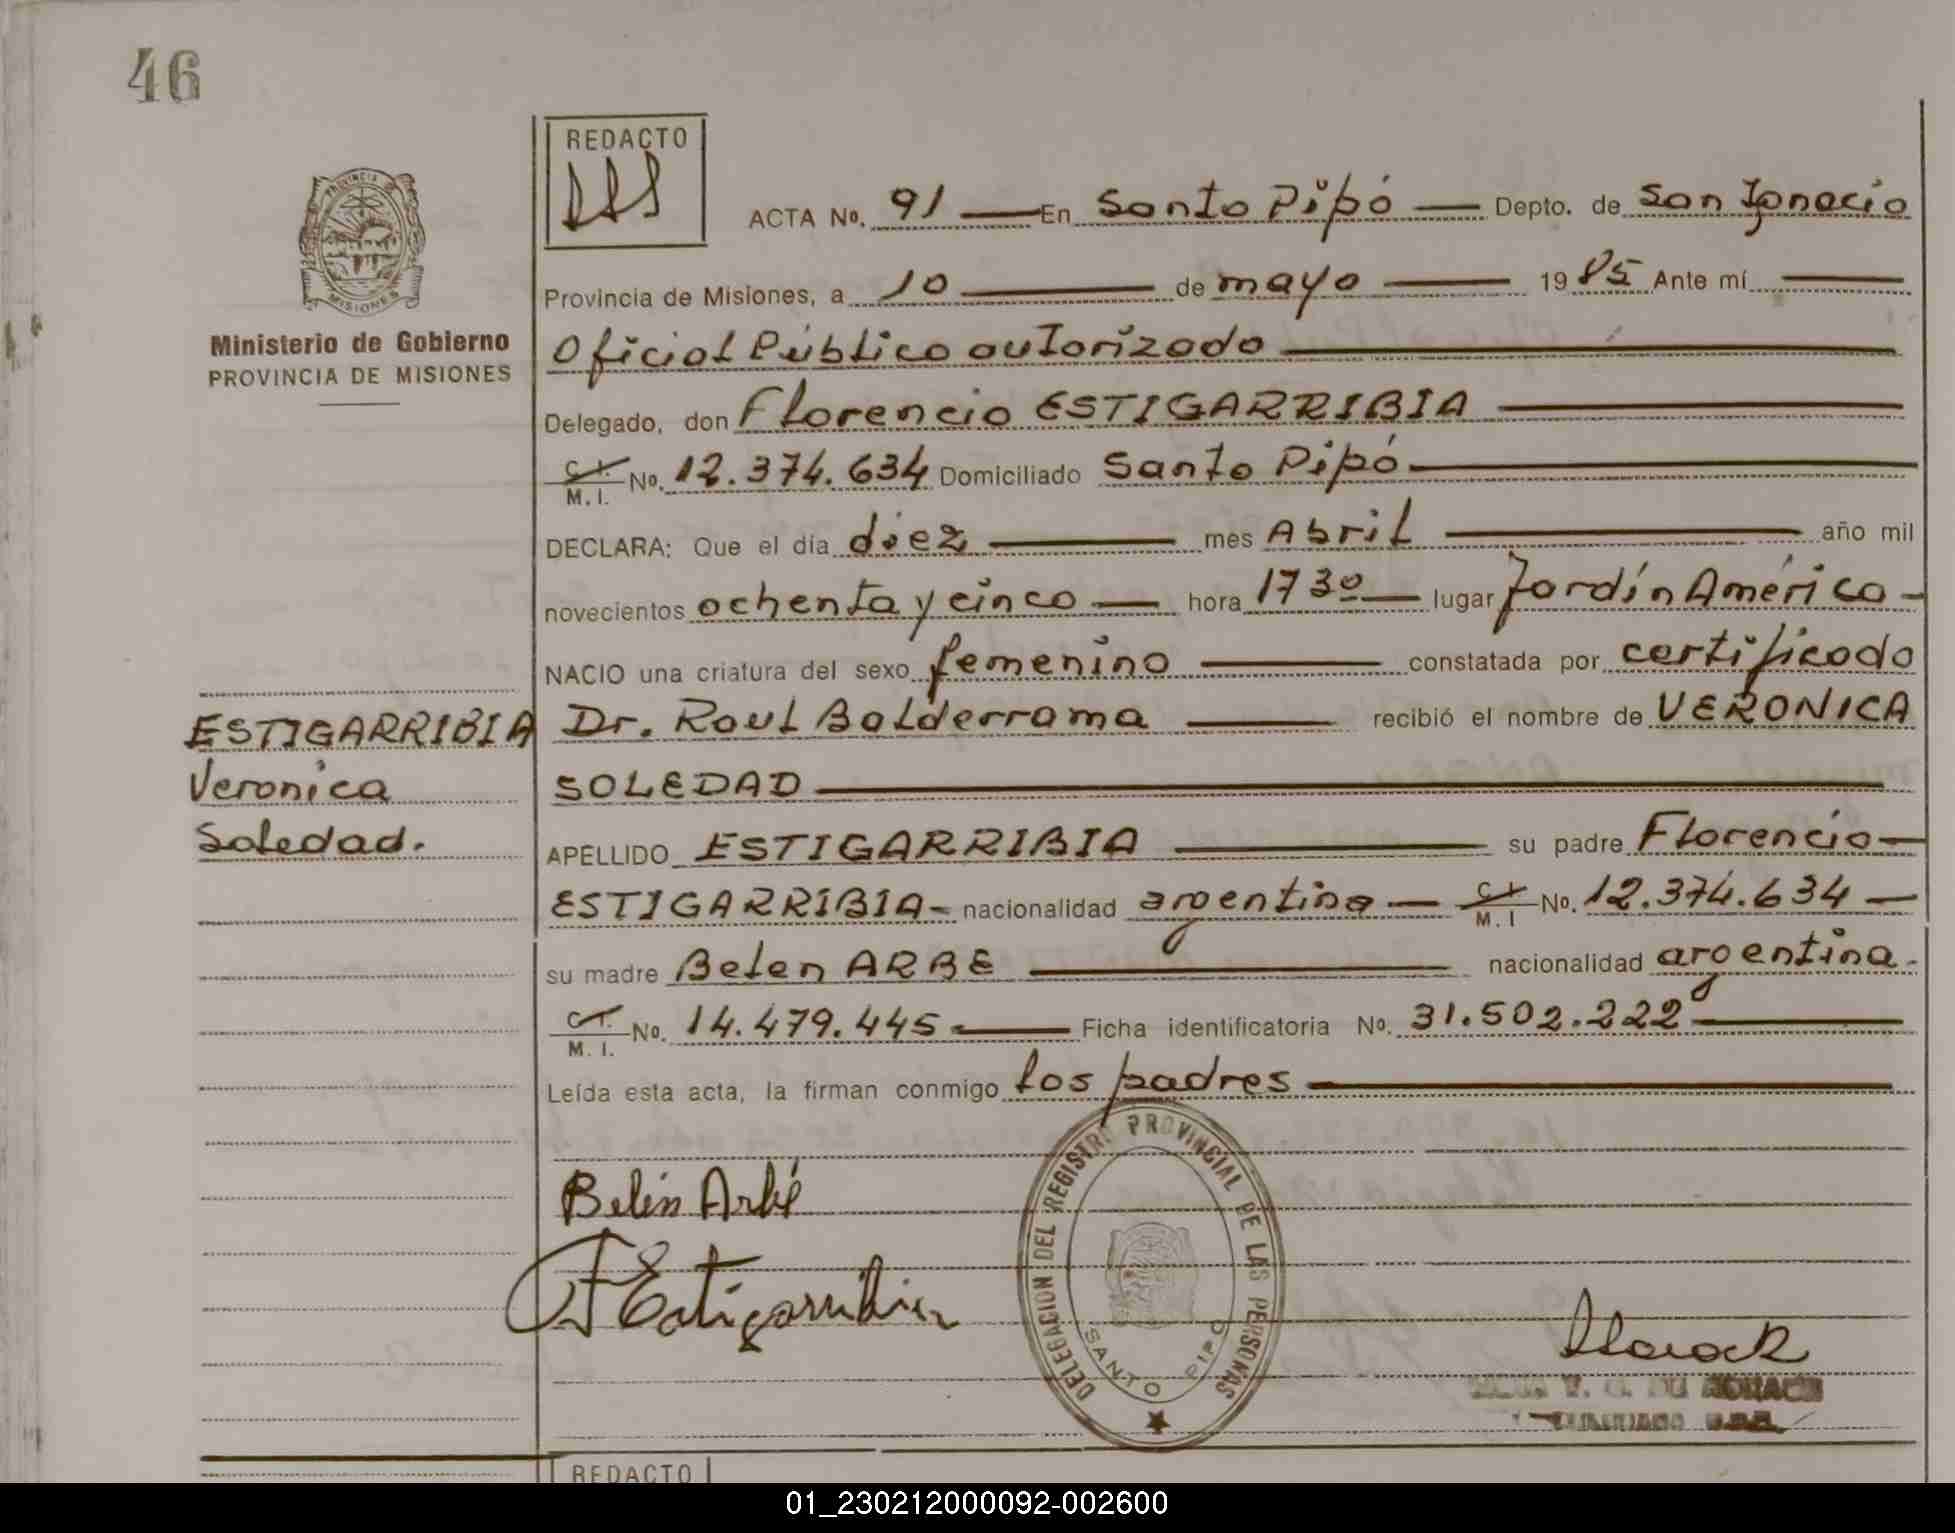 46
REDACTO
ACTA Nº. 91 En Santo Pipó Depto. de San Ignacio
PROVINCIA DE MISIONES
Provincia de Misiones, a 10 de mayo 1985 Ante mí
Ministerio de Gobierno
PROVINCIA DE MISIONES
Oficial Público autorizado
Delegado, don Florencio ESTIGARRIBIA
C.I. M.I. Nº. 12.374.634 Domiciliado Santo Pipó
DECLARA: Que el día diez mes Abril año mil
novecientos ochenta y cinco hora 17 30 lugar Jardín América -
NACIO una criatura del sexo femenino constatada por certificado
ESTIGARRIBIA
Veronica
Soledad.
Dr. Raul Balderrama recibió el nombre de VERONICA
SOLEDAD
APELLIDO ESTIGARRIBIA su padre Florencio
ESTIGARRIBIA - nacionalidad argentina C.I. M.I Nº. 12.374.634
su madre Belen ARBE nacionalidad argentina.
C.I. M.I. Nº. 14.479.445 Ficha identificatoria Nº. 31.502.222
Leída esta acta, la firman conmigo los padres
Belén Arbé
F Estigarribia
DELEGACION DEL REGISTRO PROVINCIAL DE LAS PERSONAS
SANTO PIPO
REDACTO
01_230212000092-002600